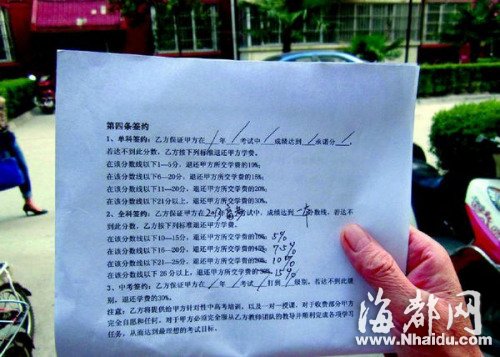 第四条签约
1、单科签约：乙方保证甲方在 / 年 / 考试中 / 成绩达到 / 承诺分 /，
若达不到此分数，乙方按下列标准退还甲方学费。
在该分数线以下1—5分，退还甲方所交学费的10%；
在该分数线以下6—20分，退还甲方所交学费的15%；
在该分数线以下11—20分，退还甲方所交学费的20%；
在该分数线以下21分以上，退还甲方所交学费的30%。
2、全科签约：乙方保证甲方在2013 高考考试中，成绩达到一本分数线，若达不
到此分数，乙方按下列标准退还甲方学费。
在该分数线以下10—15分，退还甲方所交学费的 5%
在该分数线以下16—20分，退还甲方所交学费的 7.5%
在该分数线以下21—25分，退还甲方所交学费的 10%
在该分数线以下 26 分以上，退还甲方所交学费的 15%
3、中考签约：乙方保证甲方在 / 年 / 考试 / 打到 / 级别，若达不到此级
别，退还学费的30%。
注意：乙方将提供给甲方针对性中高考培训，以及一对一授课。对于收费部分甲方
完全自愿和任何。对于甲方必须完全服从乙方教师团队的教导并顺利完成各项学习
任务，从而达到最理想的考试目标。
海都网
www.Nhaidu.com